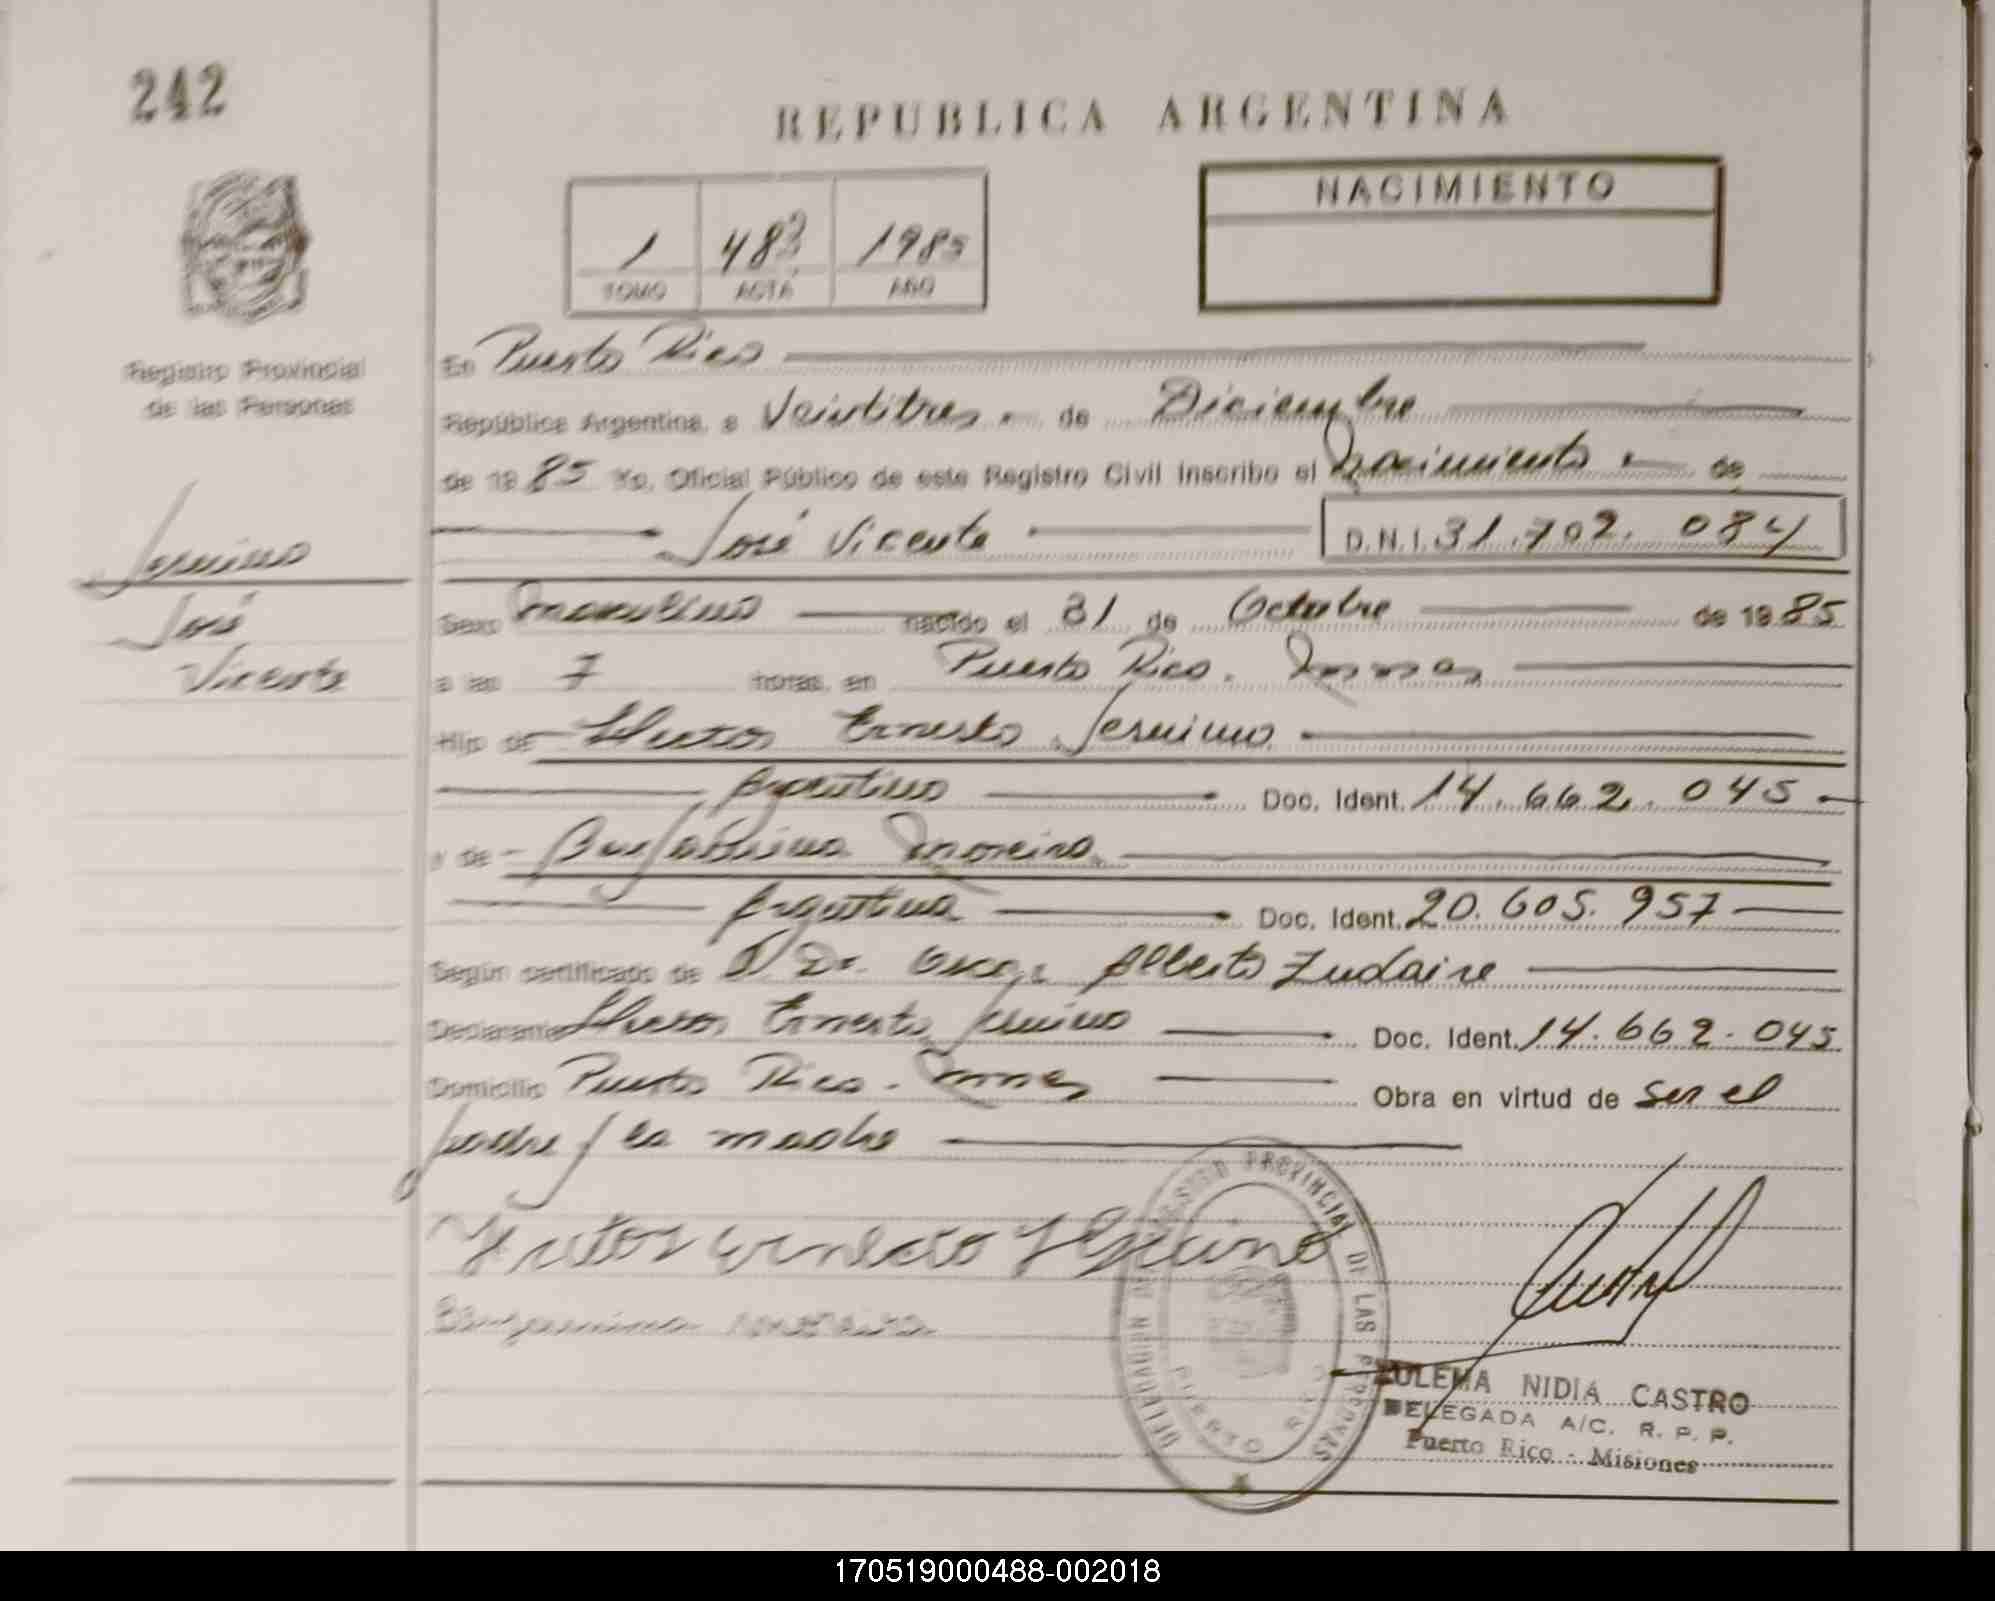 242
REPUBLICA ARGENTINA
NACIMIENTO
1 483 1985
TOMO ACTA AÑO
Registro Provincial
de las Personas
En Puerto Rico
República Argentina, a Veintitres de Diciembre
de 1985 Yo, Oficial Público de este Registro Civil inscribo el Nacimiento de
José Vicente D.N.I. 31.702.084
José
Vicente
Sexo masculino nacido el 31 de Octubre de 1985
a las 7 horas, en Puerto Rico. Mnes
Hijo de Hector Ernesto
Argentino Doc. Ident. 14.662.045
y de Moreira
Argentina Doc. Ident. 20.605.957
Según certificado de Dr. Oscar Alberto Zudaire
Declarante Hector Ernesto Doc. Ident. 14.662.045
Domicilio Puerto Rico. Mnes Obra en virtud de ser el
padre y la madre
Hector Ernesto
REGISTRO PROVINCIAL DE LAS PERSONAS
PUERTO RICO
ZULEMA NIDIA CASTRO
DELEGADA A/C. R. P. P.
Puerto Rico - Misiones
170519000488-002018